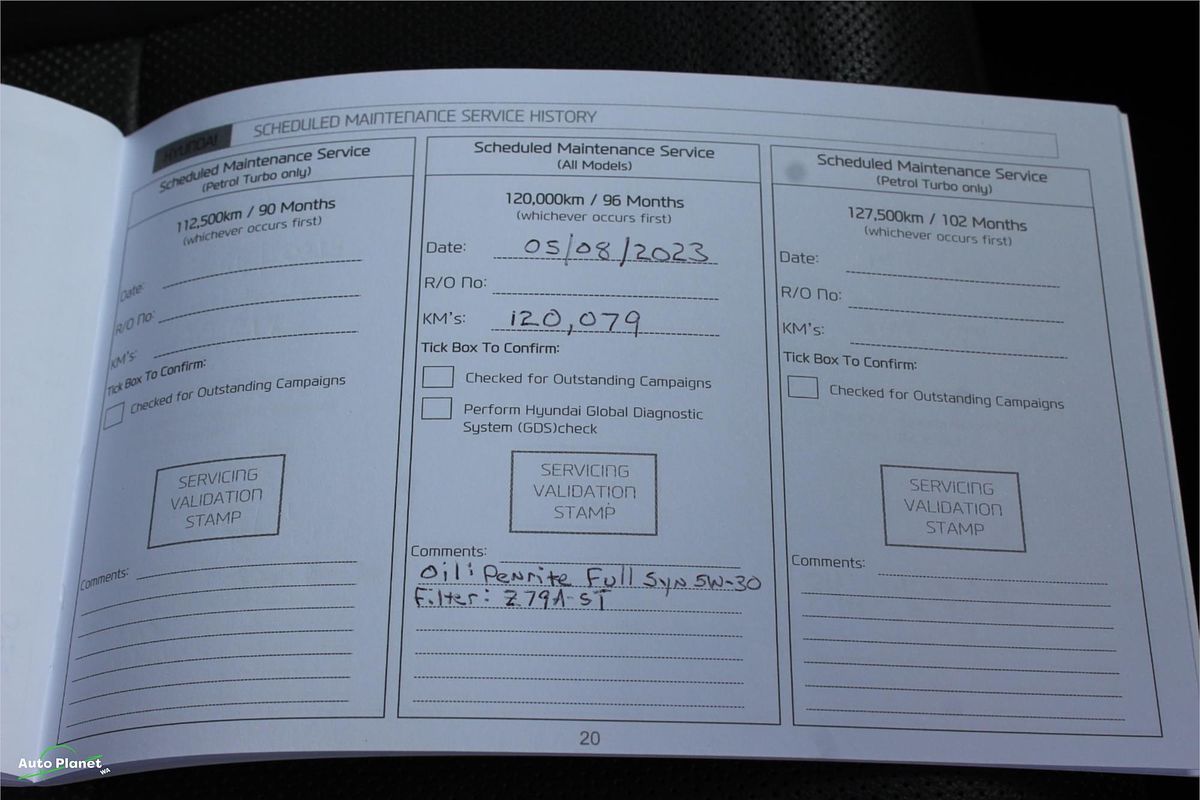 HYUNDAI
SCHEDULED MAINTENANCE SERVICE HISTORY
Scheduled Maintenance Service
(Petrol Turbo only)
112,500km / 90 Months
(whichever occurs first)
Date:
R/O No:
KM's:
Tick Box To Confirm:
Checked for Outstanding Campaigns
SERVICING
VALIDATION
STAMP
Comments:
Scheduled Maintenance Service
(All Models)
120,000km / 96 Months
(whichever occurs first)
Date: 05/08/2023
R/O No:
KM's: 120,079
Tick Box To Confirm:
Checked for Outstanding Campaigns
Perform Hyundai Global Diagnostic
System (GDS)check
SERVICING
VALIDATION
STAMP
Comments:
Oil: Penrite Full Syn 5W-30
Filter: Z79A-ST
Scheduled Maintenance Service
(Petrol Turbo only)
127,500km / 102 Months
(whichever occurs first)
Date:
R/O No:
KM's:
Tick Box To Confirm:
Checked for Outstanding Campaigns
SERVICING
VALIDATION
STAMP
Comments:
20
Auto Planet
WA